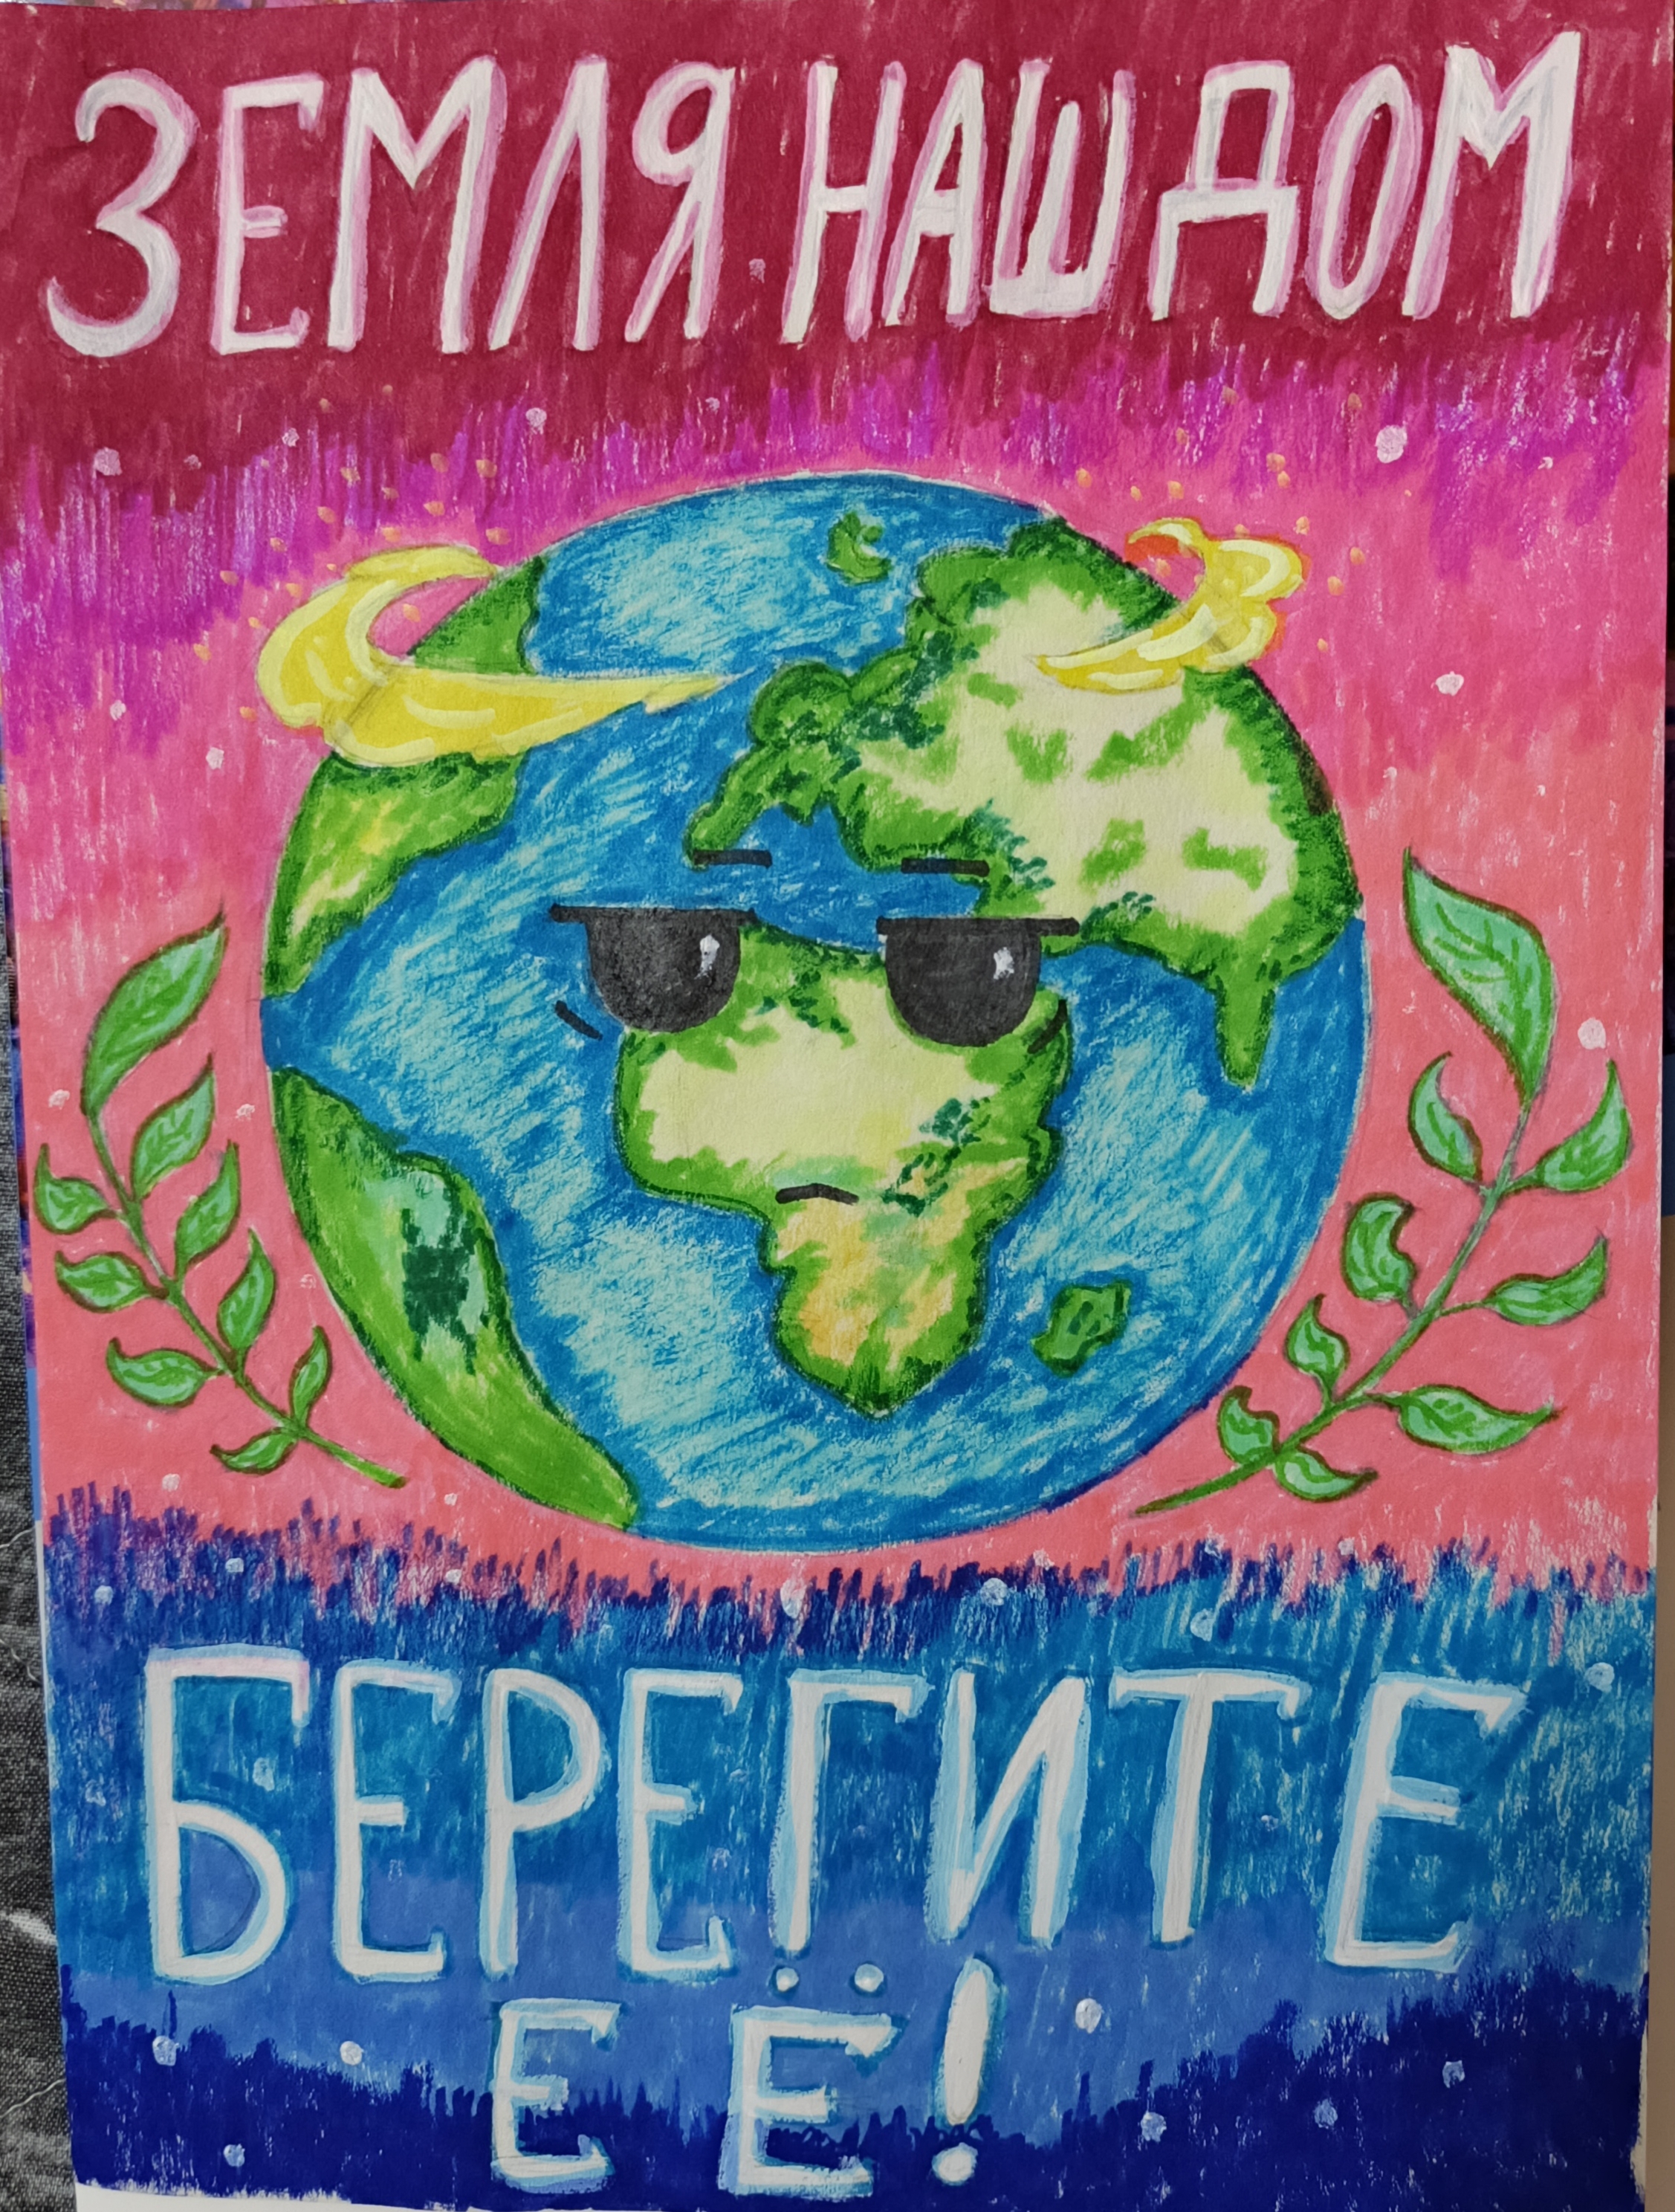 ЗЕМЛЯ НАШ ДОМ
БЕРЕГИТЕ
ЕЁ!